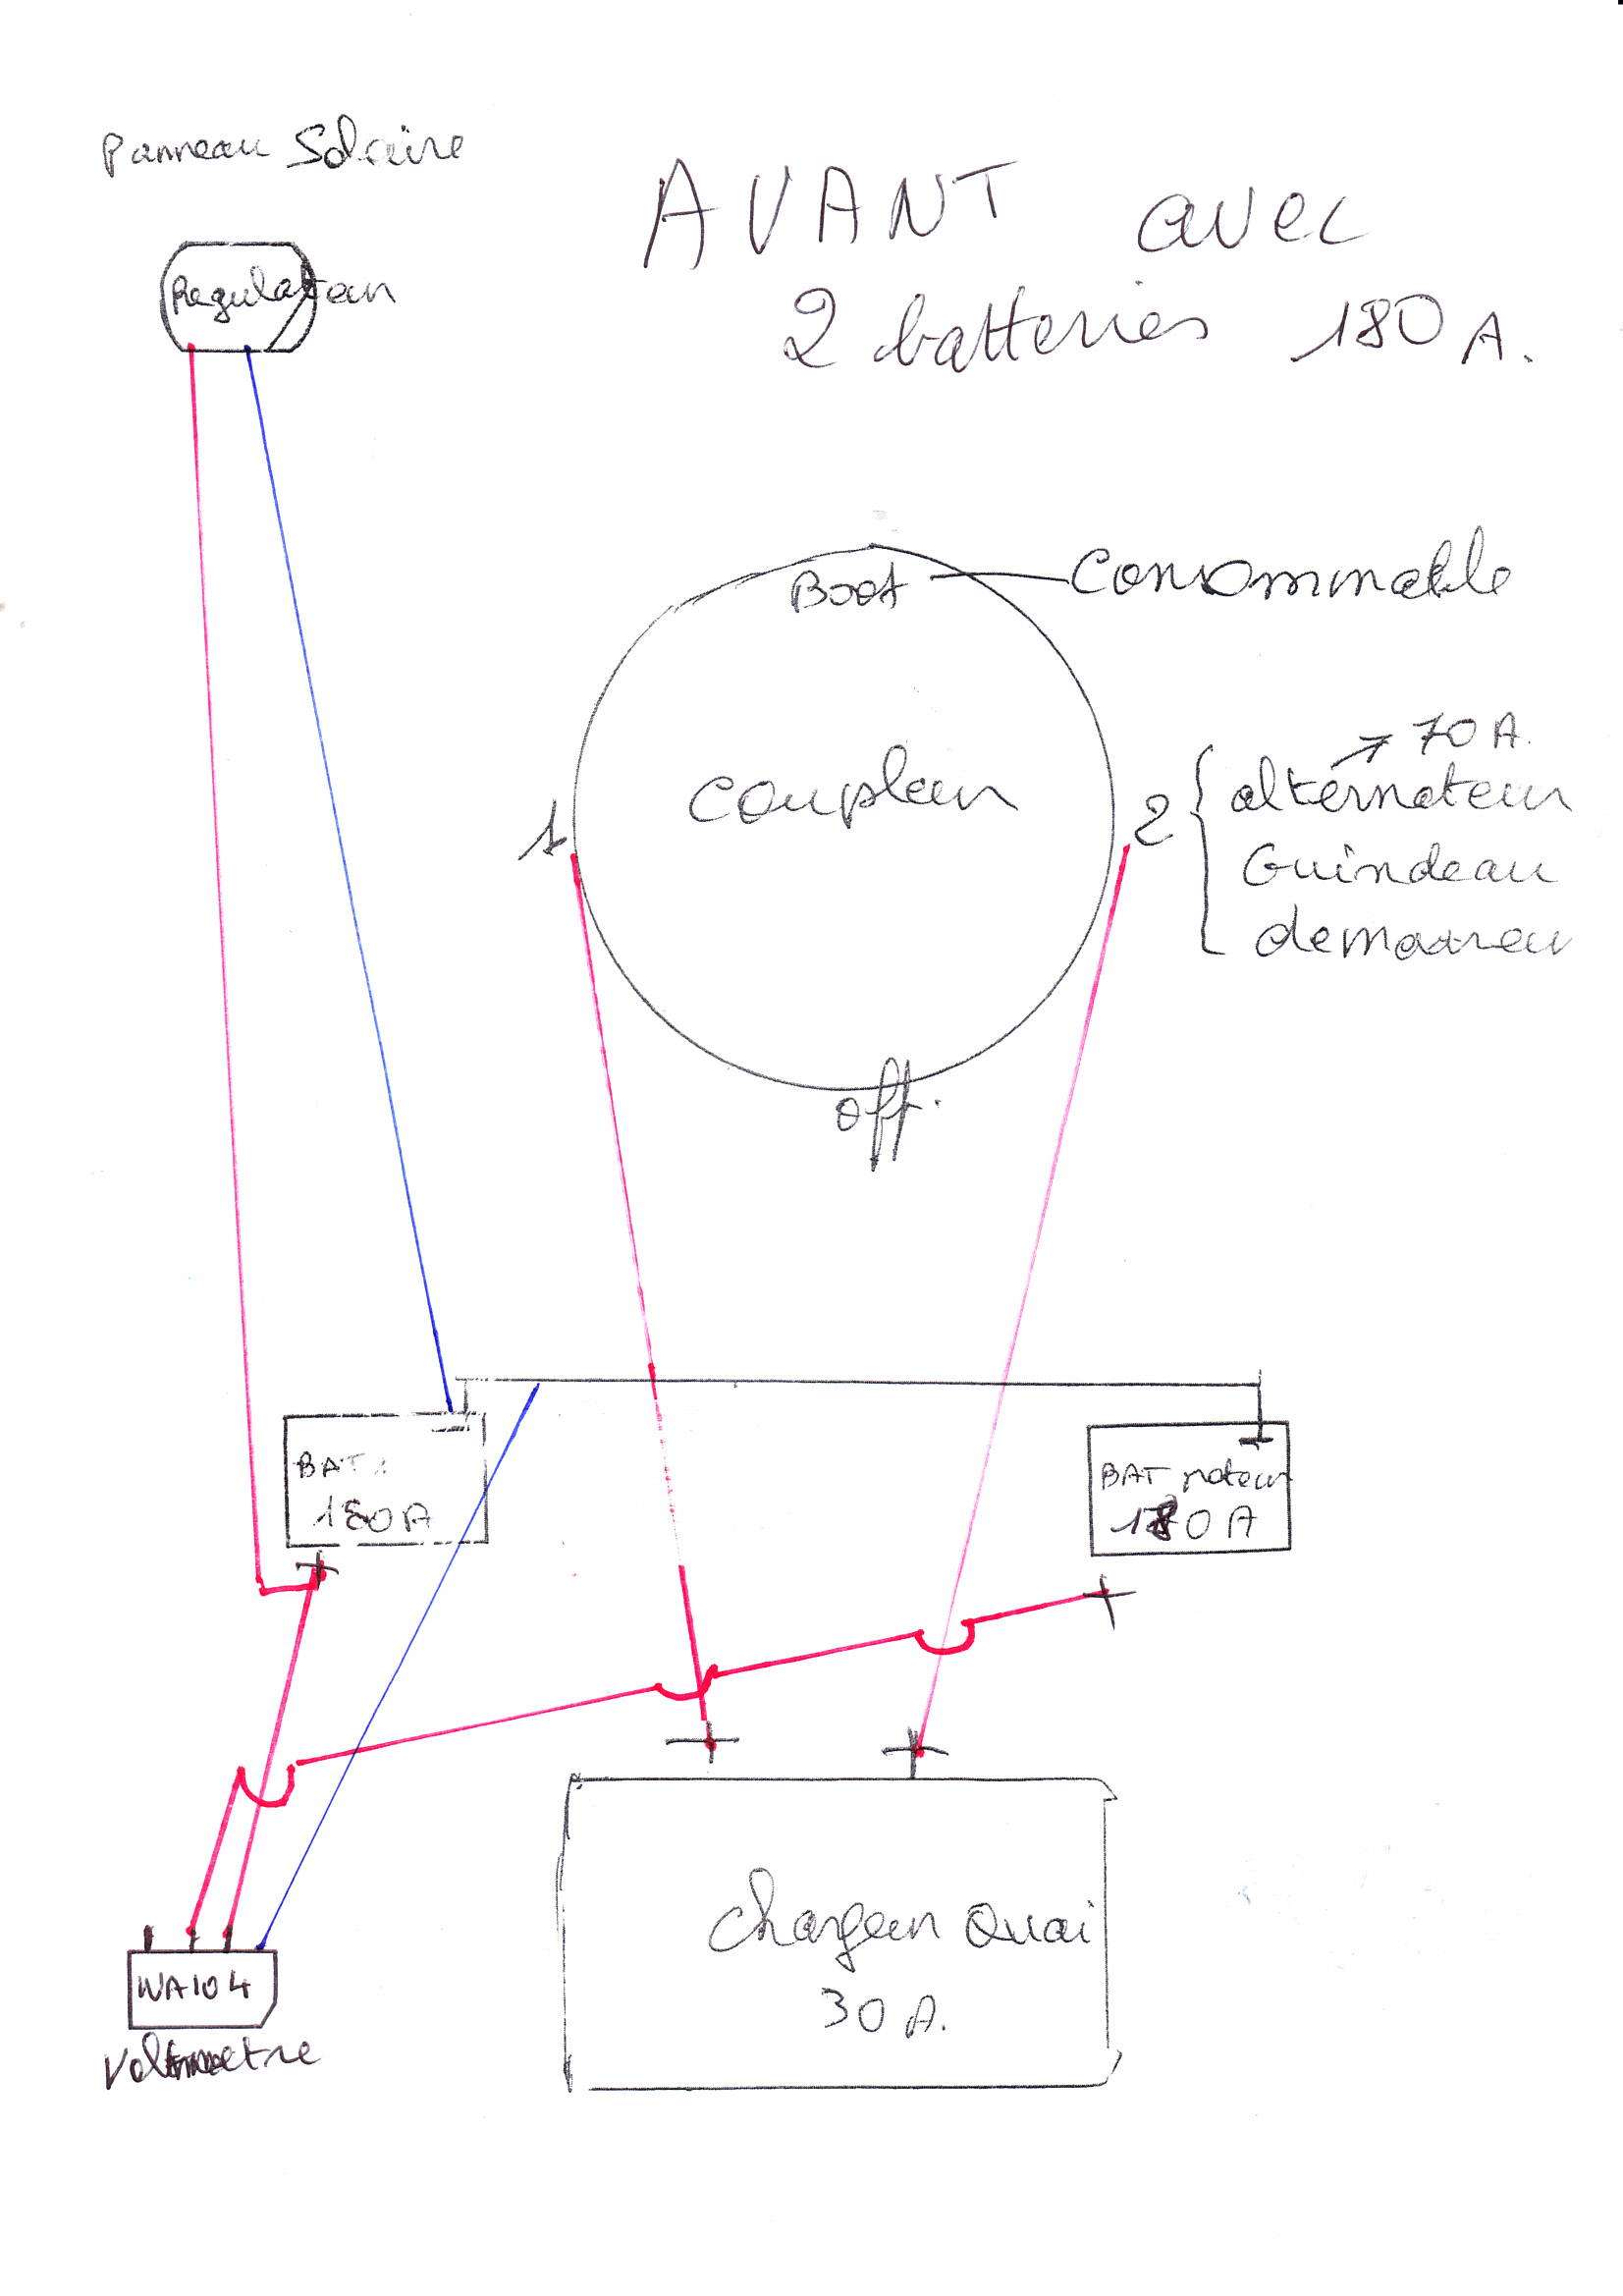 Panneau Solaire
AVANT avec
2 batteries 180 A.
Regulateur
Boot
Consommable
Coupleur
1
2
→ 70 A.
alternateur
Guindeau
demarreur
off.
BAT
180A
BAT moteur
180 A
+
+
+
+
Chargeur Quai
30 A.
WA104
Voltmetre